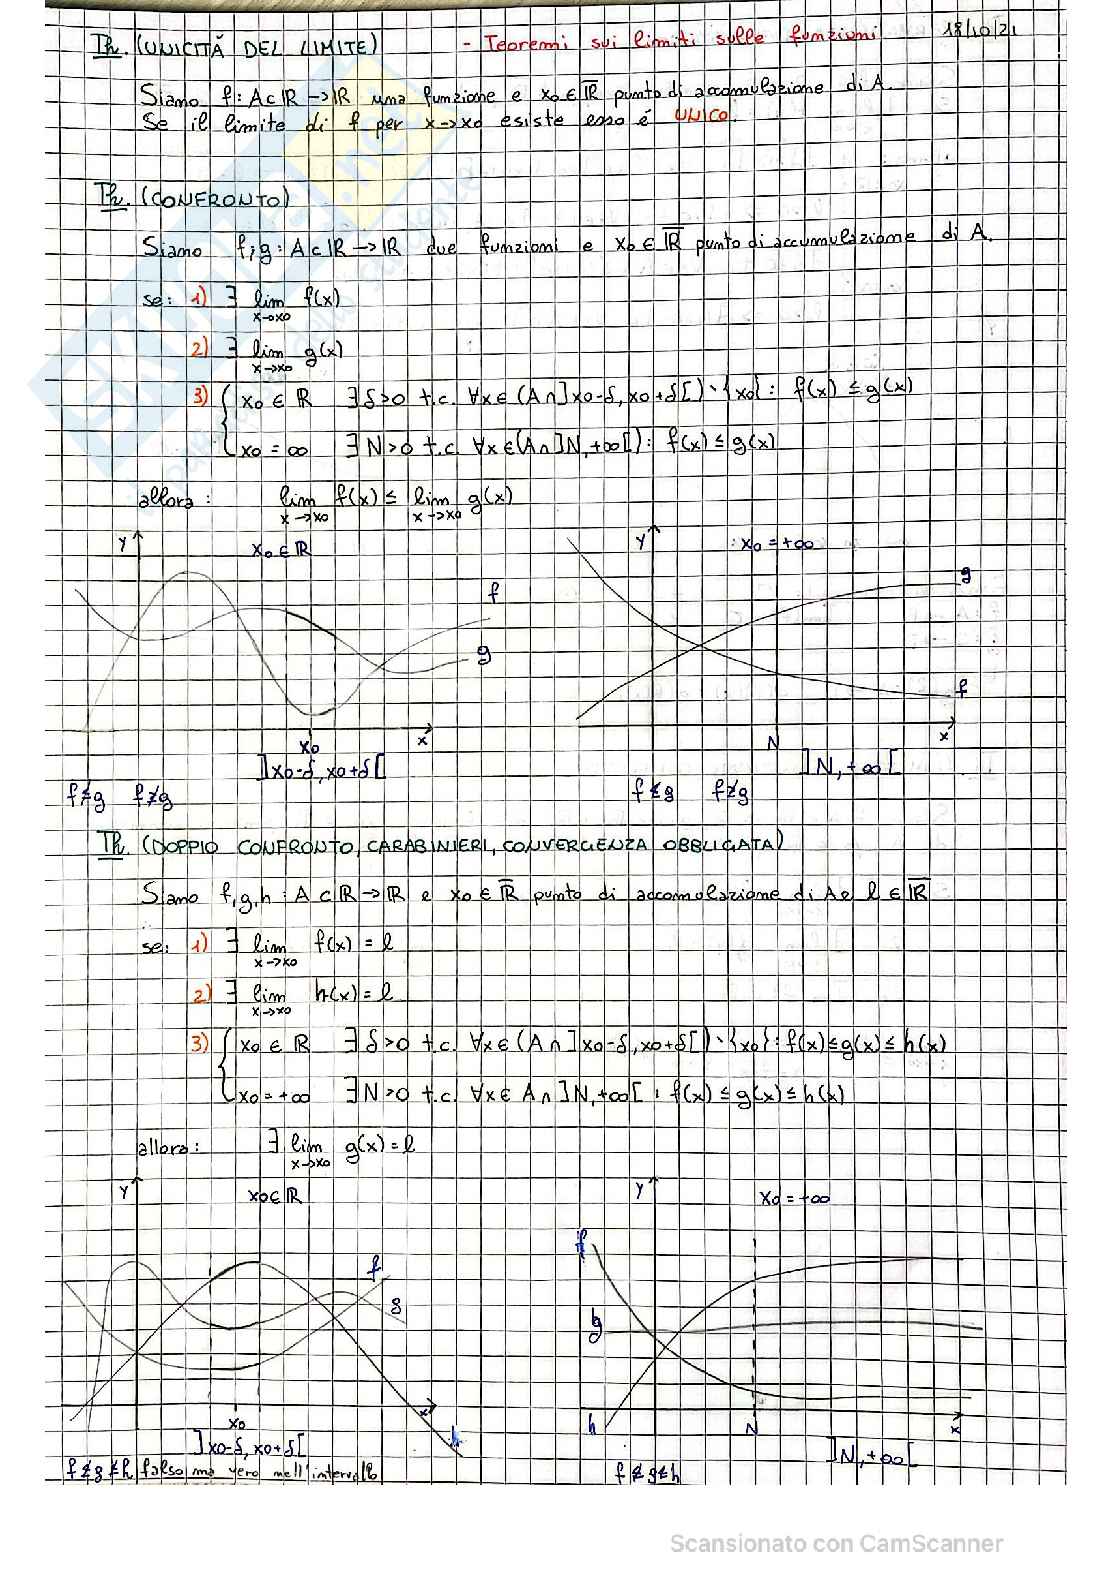 Th. (UNICITÁ DEL LIMITE) - Teoremi sui limiti sulle funzioni 18/10/21
Siano f: A⊂ℝ→ℝ una funzione e x₀∈ℝ̅ punto di accomulazione di A.
Se il limite di f per x→x₀ esiste esso é UNICO.
Th. (CONFRONTO)
Siano f,g: A⊂ℝ→ℝ due funzioni e x₀∈ℝ̅ punto di accumulazione di A.
se: 1) ∃ lim f(x)
x→x₀
2) ∃ lim g(x)
x→x₀
3) { x₀∈ℝ ∃δ>0 t.c. ∀x∈(A∩]x₀-δ, x₀+δ[)\{x₀}: f(x)≤g(x)
x₀=∞ ∃N>0 t.c. ∀x∈(A∩]N,+∞[): f(x)≤g(x)
allora: lim f(x) ≤ lim g(x)
x→x₀ x→x₀
y x₀∈ℝ y : x₀=+∞
g
f
g
f
x₀ x N x
]x₀-δ, x₀+δ[ ]N,+∞[
f≰g f≱g f≰g f≱g
Th. (DOPPIO CONFRONTO, CARABINIERI, CONVERGENZA OBBLIGATA)
Siano f,g,h: A⊂ℝ→ℝ e x₀∈ℝ̅ punto di accomulazione di A e l∈ℝ̅
se: 1) ∃ lim f(x)=l
x→x₀
2) ∃ lim h(x)=l
x→x₀
3) { x₀∈ℝ ∃δ>0 t.c. ∀x∈(A∩]x₀-δ, x₀+δ[)\{x₀}: f(x)≤g(x)≤h(x)
x₀=+∞ ∃N>0 t.c. ∀x∈A∩]N,+∞[ : f(x)≤g(x)≤h(x)
allora: ∃ lim g(x)=l
x→x₀
y x₀∈ℝ y x₀=+∞
f
f
g
g
h h
x₀ x N x
]x₀-δ, x₀+δ[ ]N,+∞[
f≰g≰h falso ma vero nell'intervallo f≰g≰h
Scansionato con CamScanner